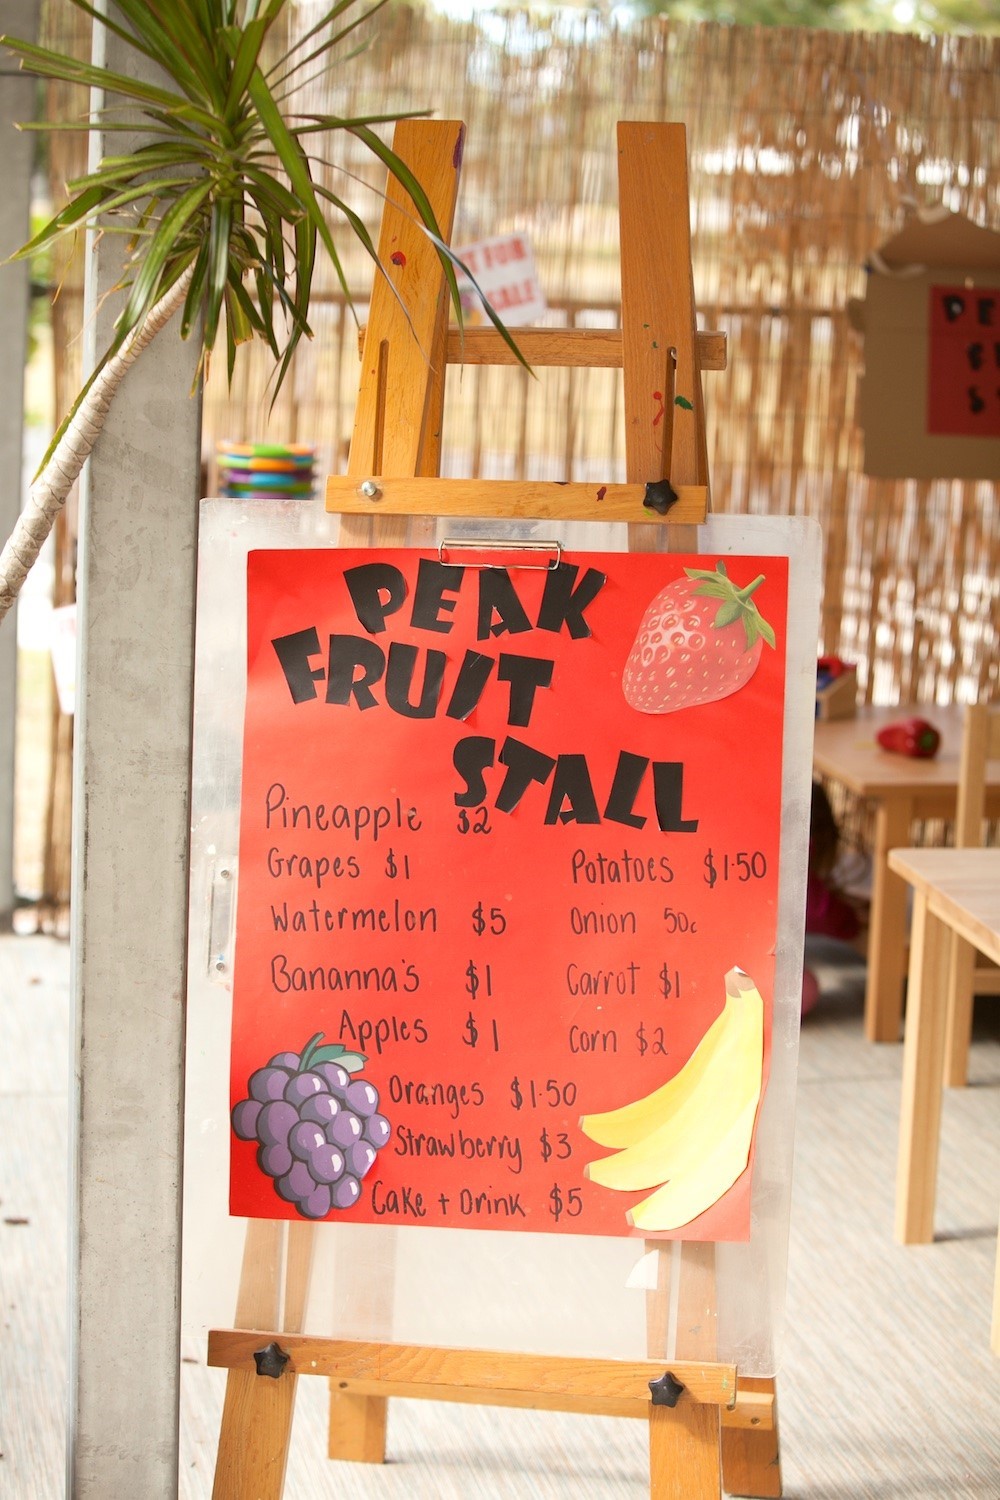 PEAK
FRUIT
STALL
Pineapple $2
Grapes $1
Watermelon $5
Bananna's $1
Apples $1
Oranges $1.50
Strawberry $3
Cake + Drink $5
Potatoes $1.50
Onion 50c
Carrot $1
Corn $2
FOR
SALE